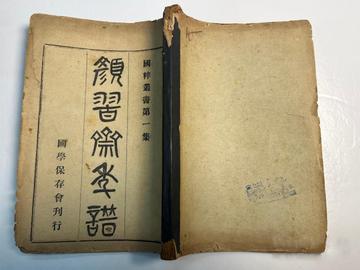 國粹叢書第一集
顏習齋年譜
國學保存會刊行